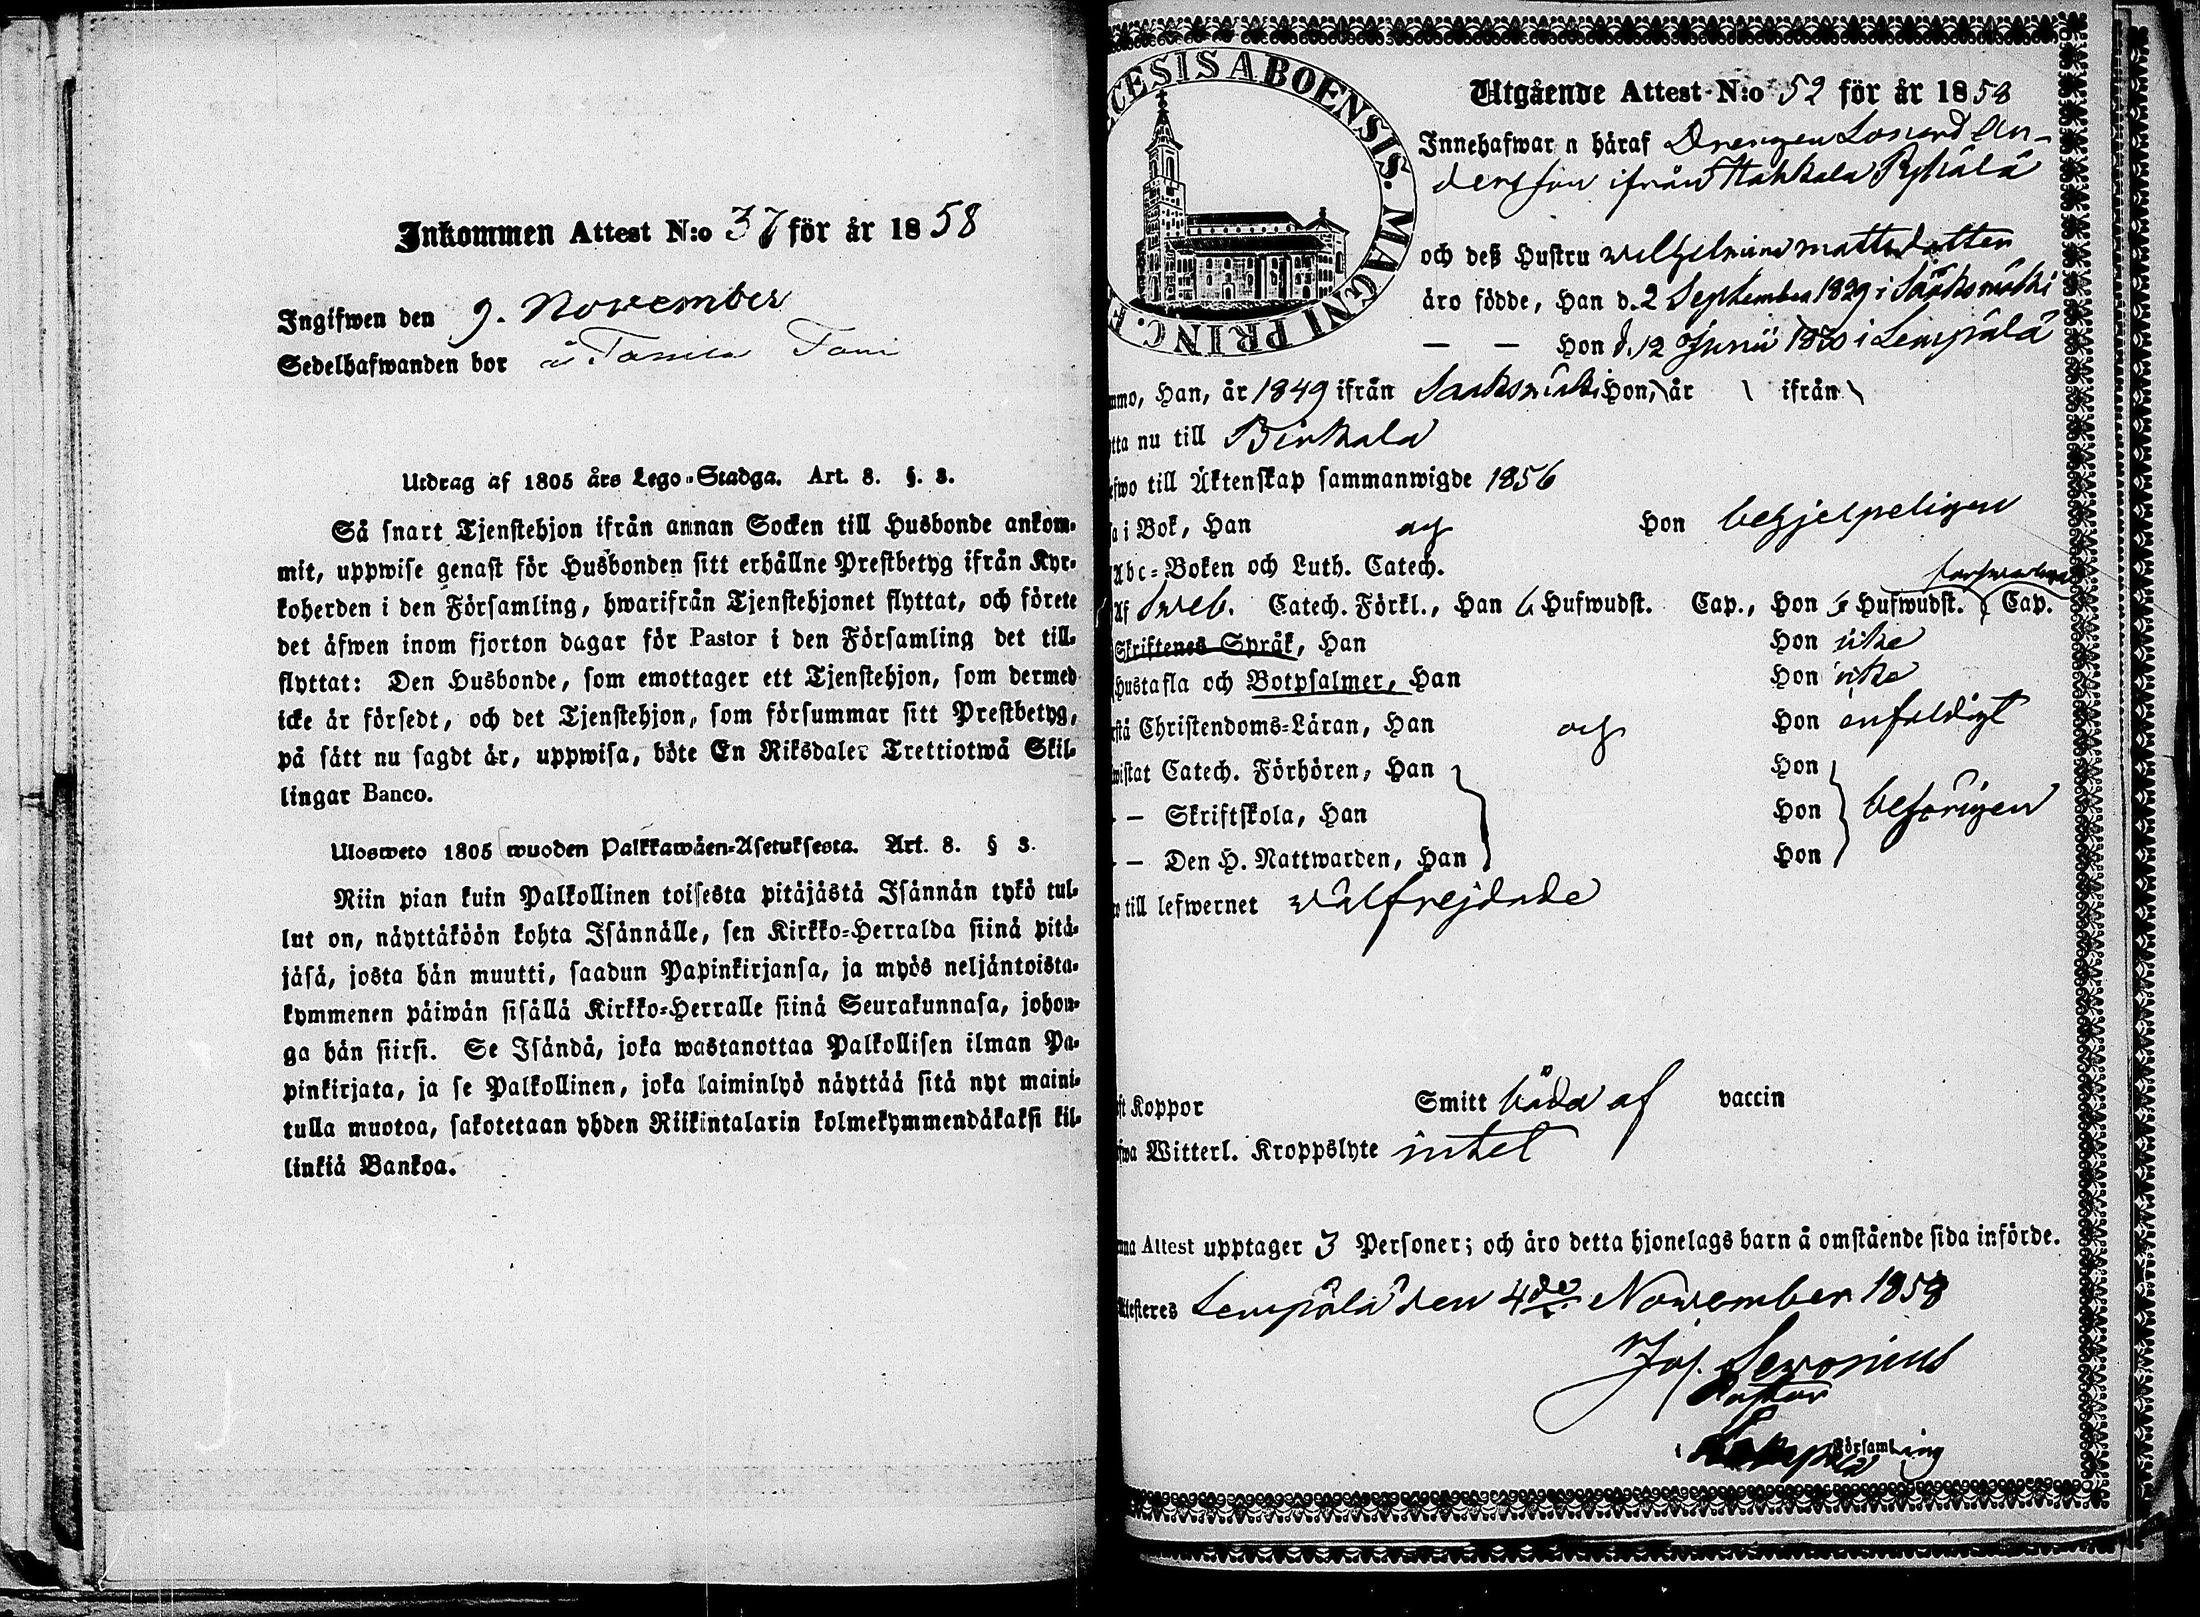 Inkommen Attest N:o 37 för år 1858
Ingifwen den 9. November
Sedelhafwanden bor å
Utdrag af 1805 års Lego-Stadga. Art. 8. §. 3.
Så snart Tjenstehjon ifrån annan Socken till Husbonde ankom-
mit, uppwise genast för Husbonden sitt erhållne Prestbetyg ifrån Kyr-
koherden i den Församling, hwarifrån Tjenstehjonet flyttat, och förete
det äfwen inom fjorton dagar för Pastor i den Församling det till-
flyttat: Den Husbonde, som emottager ett Tjenstehjon, som dermed
icke är försedt, och det Tjenstehjon, som försummar sitt Prestbetyg,
på sätt nu sagdt är, uppwisa, böte En Riksdaler Trettiotwå Skil-
lingar Banco.
Ulosweto 1805 wuoden Palkkawäen-Asetuksesta. Art. 8. § 3.
Niin pian kuin Palkollinen toisesta pitäjästä Isännän tykö tul-
lut on, näyttäköön kohta Isännälle, sen Kirkko-Herralda siinä pitä-
jäsä, josta hän muutti, saadun Papinkirjansa, ja myös neljäntoista-
kymmenen päiwän sisällä Kirkko-Herralle siinä Seurakunnasa, johon-
ga hän siirsi. Se Isändä, joka wastanottaa Palkollisen ilman Pa-
pinkirjata, ja se Palkollinen, joka laiminlyö näyttää sitä nyt maini-
tulla muotoa, sakotetaan yhden Riikintalarin kolmekymmendäkaksi kil-
linkiä Bankoa.
CESIS ABOENSIS. MAGNI PRINC. F
Utgående Attest N:o 52 för år 1858
Innehafwar n häraf Drengen Lonard An-
dersson ifrån Hakkala Ryhälä
och deß Hustru Wilhelmina Mattsdotter
äro födde, Han d. 2 September 1829 i Sääksmäki
— — Hon d. 12 Junii 1830 i Lempälä
mmo, Han, år 1849 ifrån Sääksmäki Hon, år ifrån
tta nu till Birkala
efwo till Äktenskap sammanwigde 1856
a i Bok, Han og Hon behjelpeligen
Abc-Boken och Luth. Catech.
Af Sweb. Catech. Förkl., Han 6 Hufwudst. Cap., Hon 5 Hufwudst. Cap.
Skriftenes Språk, Han Hon icke
Hustafla och Botpsalmer, Han Hon icke
rstå Christendoms-Läran, Han og Hon enfaldigt
wistat Catech. Förhören, Han Hon
- — Skriftskola, Han Hon behörigen
- — Den H. Nattwarden, Han Hon
till lefwernet wälfrejdade
ft Koppor Smitt båda af vaccin
fwa Witterl. Kroppslyte intet
nna Attest upptager 3 Personer; och äro detta hjonelags barn å omstående sida införde.
ttesteres Lempälä den 4de November 1858
Jos. Sevonius
Pastor
i Lempälä Församling